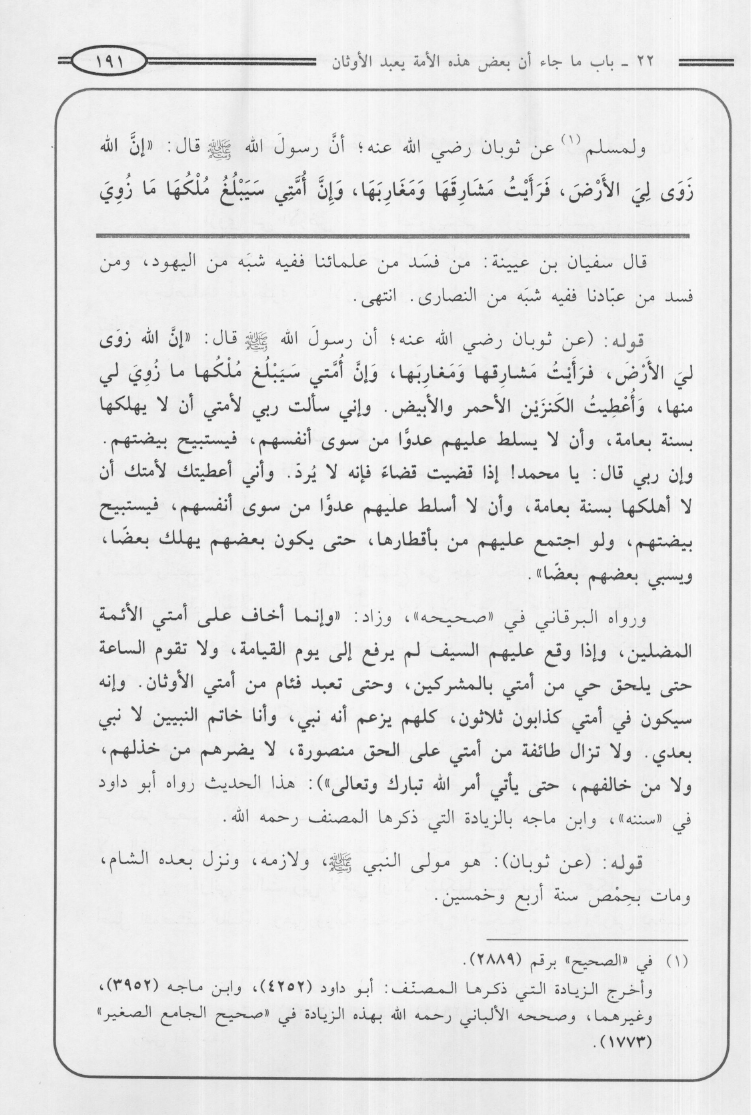 ٢٢ ـ باب ما جاء أن بعض هذه الأمة يعبد الأوثان
١٩١
ولمسلم(١) عن ثوبان رضي الله عنه؛ أنَّ رسولَ الله ﷺ قال: «إنَّ الله
زَوَى لِيَ الأَرْضَ، فَرَأَيْتُ مَشَارِقَهَا وَمَغَارِبَهَا، وَإِنَّ أُمَّتِي سَيَبْلُغُ مُلْكُهَا مَا زُوِيَ
قال سفيان بن عيينة: من فسَد من علمائنا ففيه شبَه من اليهود، ومن
فسد من عبّادنا ففيه شبَه من النصارى. انتهى.
قوله: (عن ثوبان رضي الله عنه؛ أن رسولَ الله ﷺ قال: «إنَّ الله زوَى
ليَ الأَرْضَ، فرَأَيْتُ مَشارِقها وَمَغارِبَها، وَإنَّ أُمَّتي سَيَبْلُغ مُلْكُها ما زُوِيَ لي
منها، وَأُعْطِيتُ الكَنزَيْن الأحمر والأبيض. وإني سألت ربي لأمتي أن لا يهلكها
بسنة بعامة، وأن لا يسلط عليهم عدوًّا من سوى أنفسهم، فيستبيح بيضتهم.
وإن ربي قال: يا محمد! إذا قضيت قضاءً فإنه لا يُردّ. وأني أعطيتك لأمتك أن
لا أهلكها بسنة بعامة، وأن لا أسلط عليهم عدوًّا من سوى أنفسهم، فيستبيح
بيضتهم، ولو اجتمع عليهم من بأقطارها، حتى يكون بعضهم يهلك بعضًا،
ويسبي بعضهم بعضًا».
ورواه البرقاني في «صحيحه»، وزاد: «وإنما أخاف على أمتي الأئمة
المضلين، وإذا وقع عليهم السيف لم يرفع إلى يوم القيامة، ولا تقوم الساعة
حتى يلحق حي من أمتي بالمشركين، وحتى تعبد فئام من أمتي الأوثان. وإنه
سيكون في أمتي كذابون ثلاثون، كلهم يزعم أنه نبي، وأنا خاتم النبيين لا نبي
بعدي. ولا تزال طائفة من أمتي على الحق منصورة، لا يضرهم من خذلهم،
ولا من خالفهم، حتى يأتي أمر الله تبارك وتعالى»): هذا الحديث رواه أبو داود
في «سننه»، وابن ماجه بالزيادة التي ذكرها المصنف رحمه الله.
قوله: (عن ثوبان): هو مولى النبي ﷺ، ولازمه، ونزل بعده الشام،
ومات بحِمْص سنة أربع وخمسين.
(١) في «الصحيح» برقم (٢٨٨٩).
وأخرج الزيادة التي ذكرها المصنّف: أبو داود (٤٢٥٢)، وابن ماجه (٣٩٥٢)،
وغيرهما، وصححه الألباني رحمه الله بهذه الزيادة في «صحيح الجامع الصغير»
(١٧٧٣).